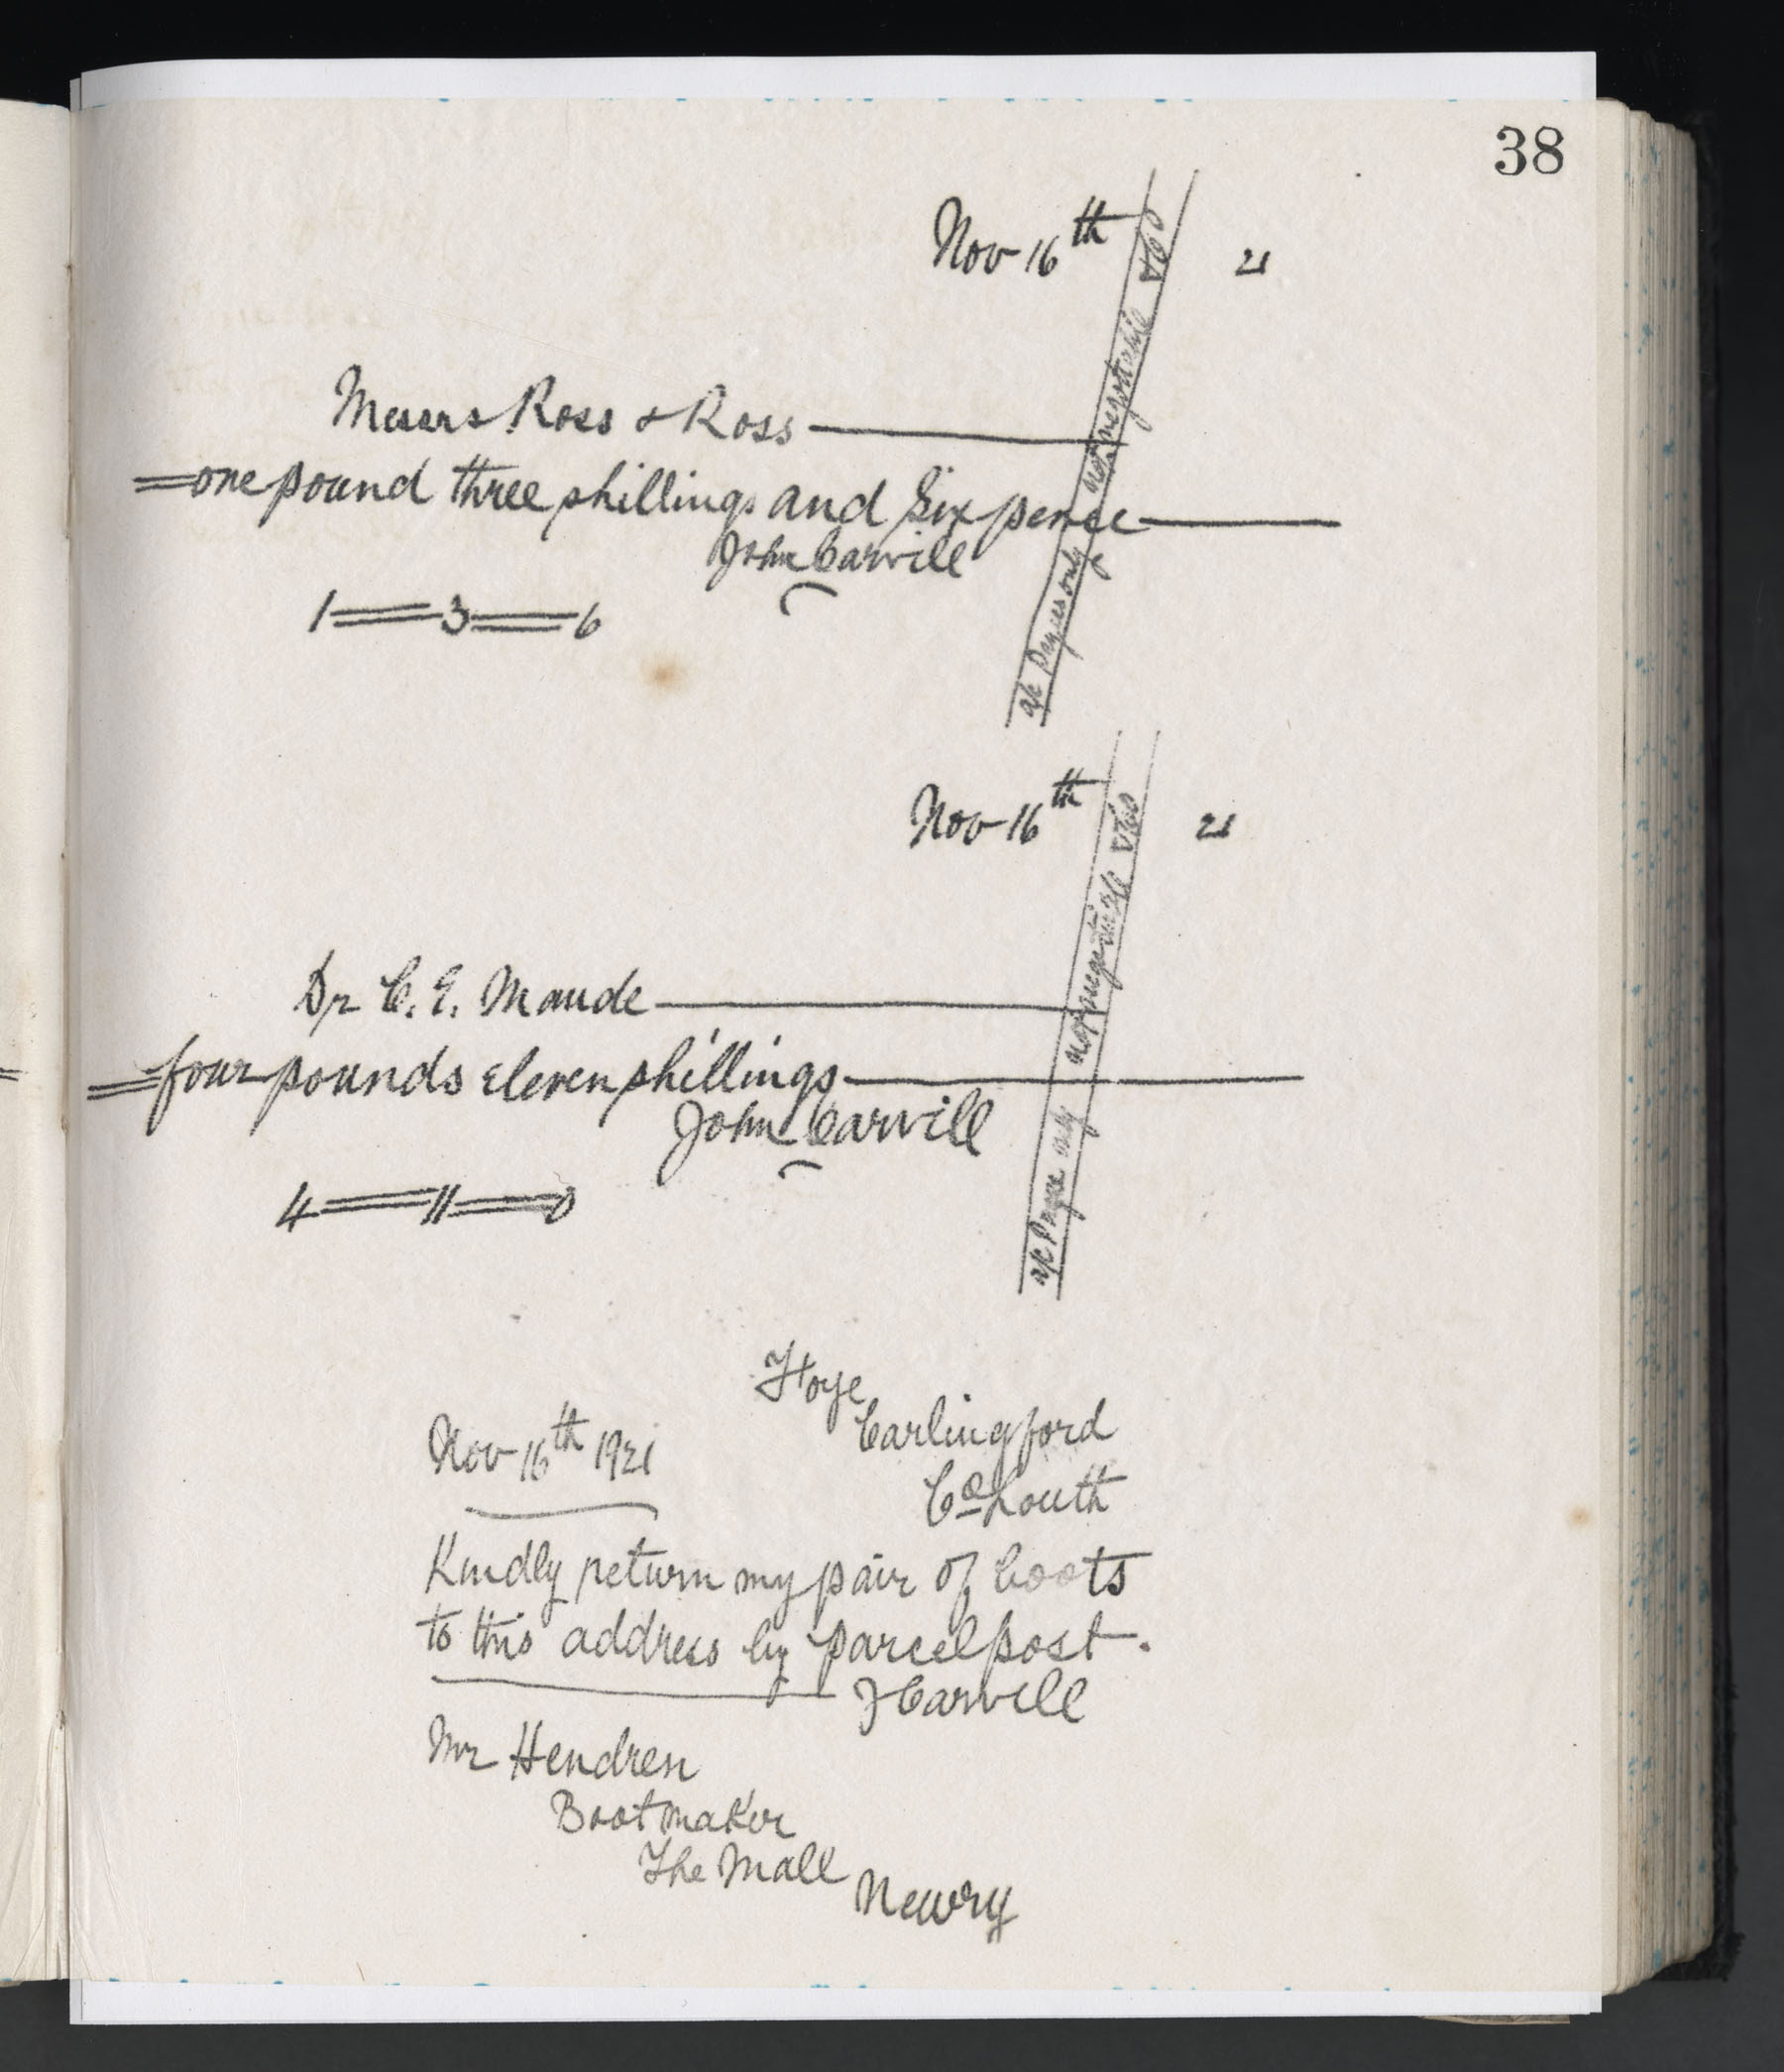 38
Nov 16th 21
Messrs Ross & Ross
= one pound three shillings and Six pence
John Carvill
1 = 3 = 6
a/c Payees only not negotiable & Co
Nov 16th 21
Dr C. E. Maude
= four pounds eleven shillings
John Carvill
4 = 11 = 0
a/c Payee only not negotiable & Co
Carlingford
Nov 16th 1921
Co Louth
Kindly return my pair of boots
to this address by parcel post.
J Carvill
Mr Hendren
Bootmaker
The Mall
Newry